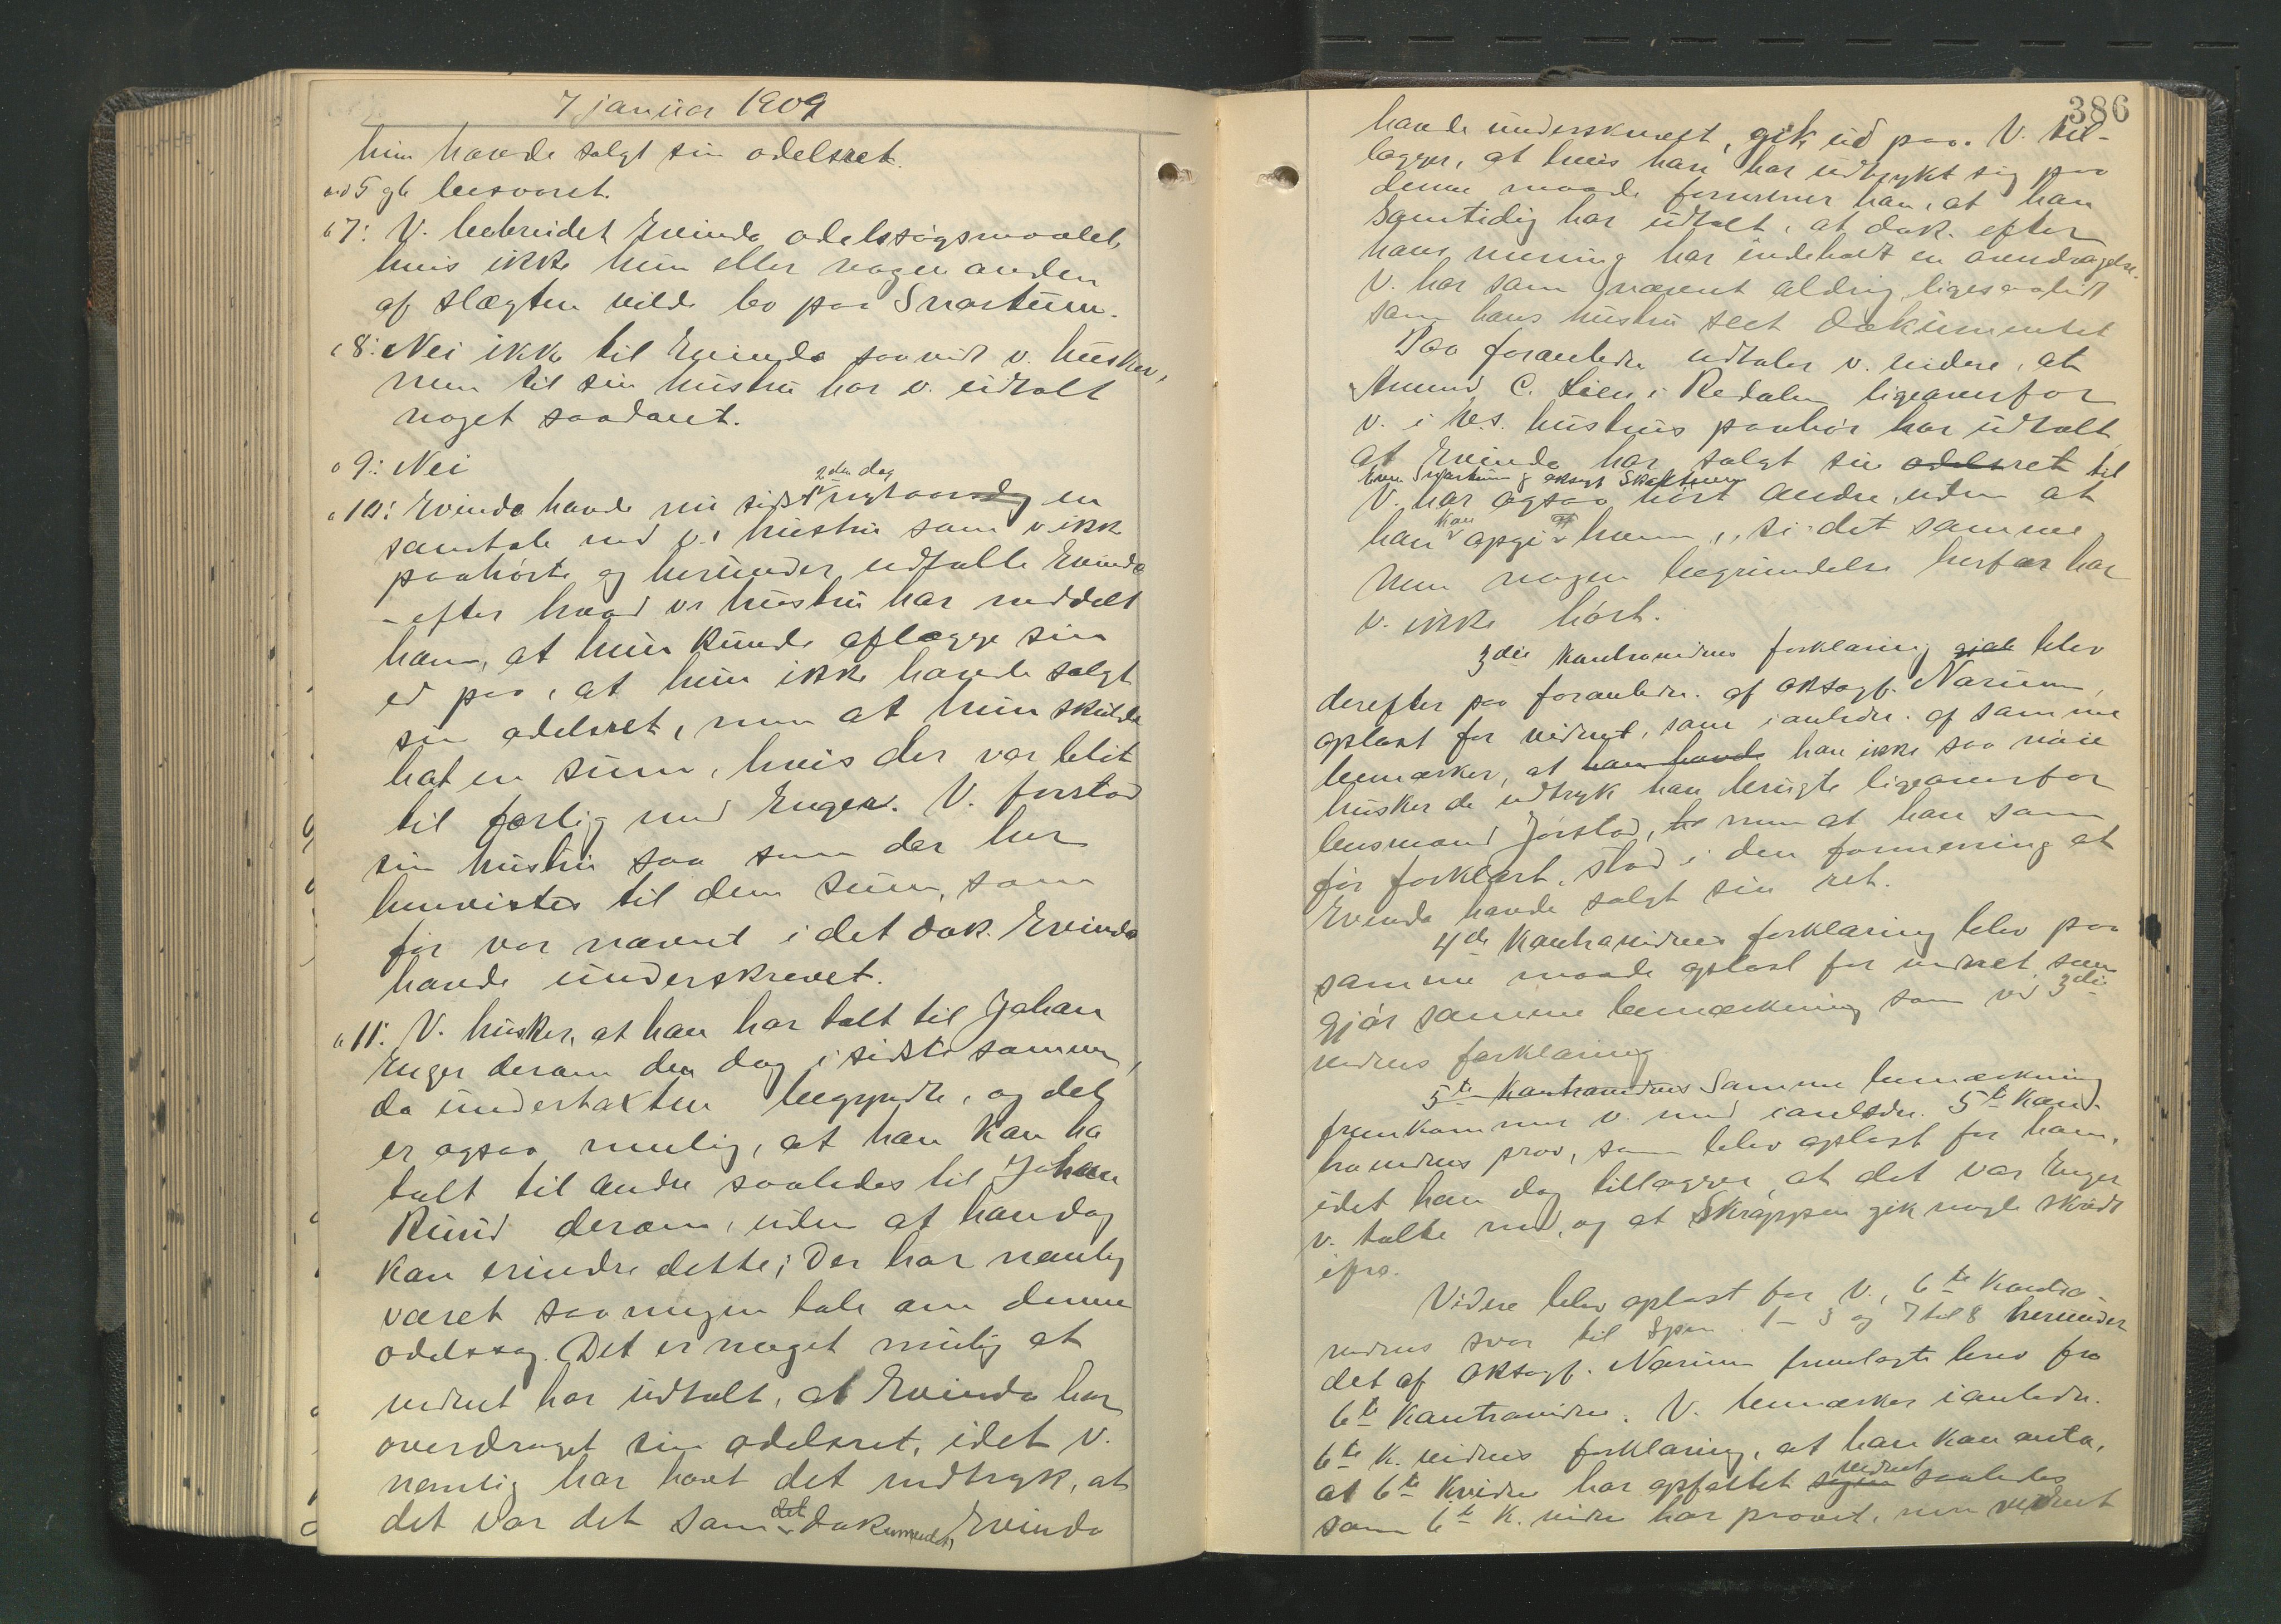 7 januar 1909
hun havde solgt sin odelsret.
ad 5 og 6 besvaret.
" 7: V. bebreidet Evinda odelssøgsmaalet,
hvis ikke hun eller nogen anden
af slægten vilde bo paa Snartum.
" 8: Nei ikke til Evinda saavidt v. husker,
men til sin hustru har v. udtalt
noget saadant.
" 9: Nei
2den dag
" 10: Evinda havde nu sidst nytaarsdag en
samtale med v.s hustru som v. ikke
paahørte og herunder udtalte Evinda
- efter hvad vs hustru har meddelt
ham, at hun kunde aflægge sin
ed paa, at hun ikke havde solgt
sin odelsret, men at hun skulde
hat en sum, hvis der var blit
til forlig med Enger. V. forstod
sin hustru saa som der her
henvistes til den sum, som
før var nævnt i det dok. Evinda
havde underskrevet.
" 11: V. husker, at han har talt til Johan
Enger derom den dag i sidste sommer,
da undertakten begyndte, og det
er ogsaa mulig, at han kan ha
talt til andre saaledes til Johan
Ruud derom, uden at han dog
kan erindre dette; Der har nemlig
været saa megen tale om denne
odelssag. Det er meget mulig at
vidnet har udtalt, at Evinda har
overdraget sin odelsret, idet v.
nemlig har havt det indtryk, at
det var det som det dokumentet, Evinda
386
havde underskrevet, gik ud paa. V. til-
lægger, at hvis han har udtrykt sig paa
denne maade formener han, at han
samtidig har udtalt, at dok. efter
hans mening har indeholdt en overdragelse.
V. har som nævnt aldrig ligesaalidt
som hans hustru seet dokumentet
Paa foranledn. udtaler v. videre, at
Amund C. Lien i Redalen ligeoverfor
v. i hs. hustrus paahør har udtalt
at Evinda har solgt sin odelsret til
Even Snartum og aksagf. Skattum
V. har ogsaa hørt andre, uden at
han kan opgi hvem, si det samme
Men nogen begrundelse herfor har
v. ikke hørt.
3die kontravidnes forklaring gjok blev
derefter paa foranledn. af oksagf. Narum,
oplæst for vidnet, som i anledn. af samme
bemærker, at han havde han ikke saa nøie
husker de udtryk han brugte ligeoverfor
lensmand Jørstad, men at han som
før forklart, stod i den formening at
Evinda havde solgt sin ret.
4de kontravidnes forklaring blev paa
samme maade oplæst for vidnet, som
gjør samme bemærkning som ved 3die
vidnes forklaring
5te kontravidnes Samme bemærkning
fremkommer v. med i anledn. 5te kon-
travidnes prov, som blev oplæst for ham,
idet han dog tillægger, at det var Enger
v. talte med, og at Skrappen gik nogle skridt
ifra.
Videre blev oplæst for V., 6te kontra-
vidnes svar til spm. 1-3 og 7 til 8 herunder
det af oksagf. Narum fremlagte brev fra
6te kontravidne. V. bemærker i anledn.
6te k. vidnes forklaring, at han kan anta,
vidnet
at 6te k.vidne har opfattet saaledes
som 6te k. vidne har provet, men vidnet